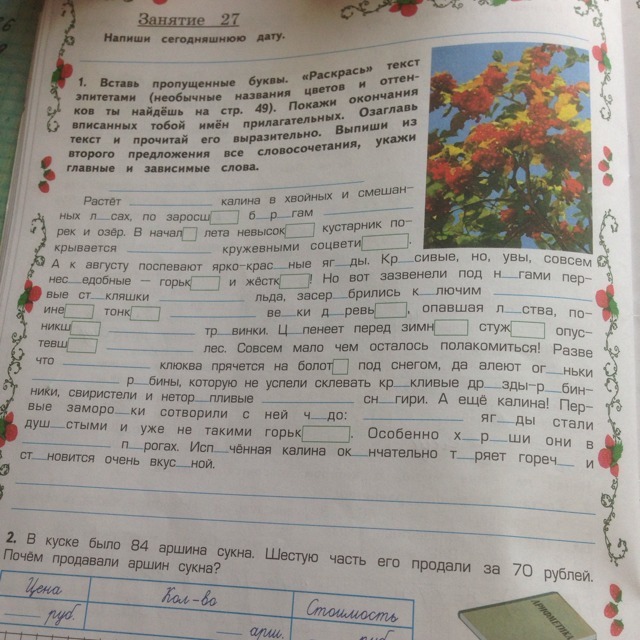 Занятие 27
Напиши сегодняшнюю дату.
1. Вставь пропущенные буквы. «Раскрась» текст
эпитетами (необычные названия цветов и оттен-
ков ты найдёшь на стр. 49). Покажи окончания
вписанных тобой имён прилагательных. Озаглавь
текст и прочитай его выразительно. Выпиши из
второго предложения все словосочетания, укажи
главные и зависимые слова.
Растёт ____ калина в хвойных и смешан-
ных л__сах, по заросш□ б__р__гам ____
рек и озёр. В начал□ лета невысок□ кустарник по-
крывается ____ кружевными соцвети□.
А к августу поспевают ярко-крас__ные яг__ды. Кр__сивые, но, увы, совсем
нес__едобные – горьк□ и жёстк□! Но вот зазвенели под н__гами пер-
вые ст__кляшки ____ льда, засер__брились к__лючим ____
ине□ тонк□ ____ ве__ки д__ревь□, опавшая л__ства, по-
никш□ ____ тр__винки. Ц__пенеет перед зимн□ стуж□ опус-
тевш□ ____ лес. Совсем мало чем осталось полакомиться! Разве
что ____ клюква прячется на болот□ под снегом, да алеют ог__ньки
____ р__бины, которую не успели склевать кр__кливые др__зды-р__бин-
ники, свиристели и нетор__пливые ____ сн__гири. А ещё калина! Пер-
вые заморо__ки сотворили с ней ч__до: ____ яг__ды стали
душ__стыми и уже не такими горьк□. Особенно х__р__ши они в
____ п__рогах. Исп__чённая калина ок__нчательно т__ряет гореч__ и
ст__новится очень вкус__ной.
2. В куске было 84 аршина сукна. Шестую часть его продали за 70 рублей.
Почём продавали аршин сукна?
Цена Кол-во Стоимость
____ руб. ____ арш. ____ руб.
АРИФМЕТИКА